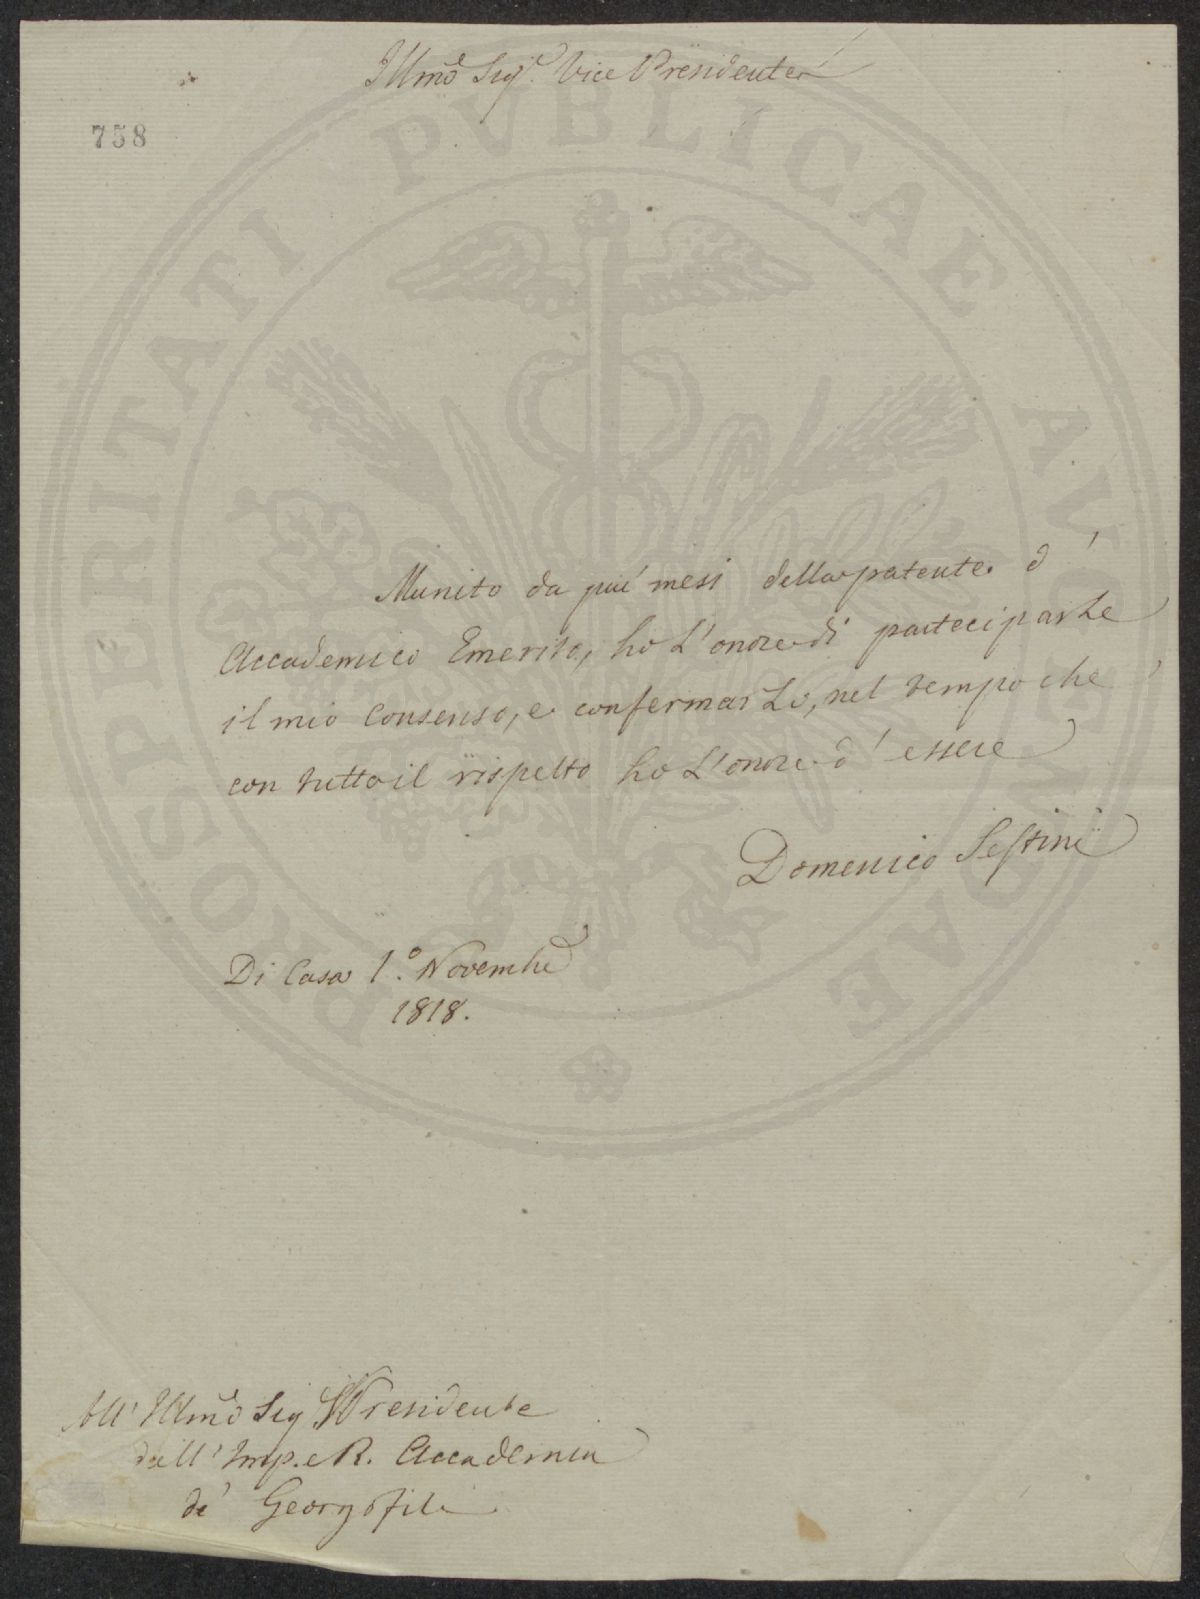 Illmo Sigr. Vice Presidente
758
PROSPERITATI PVBLICAE AVGENDAE
Munito da piu' mesi della patente d'
Accademico Emerito, ho L'onore di parteciparLe
il mio Consenso, e confermarLo, nel tempo che
con tutto il rispetto ho L'onore d' essere
Domenico Sestini
Di Casa 1.° Novembre
1818.
All' Illmo Sig Presidente
dell' Imp. e R. Accademia
de' Georgofili